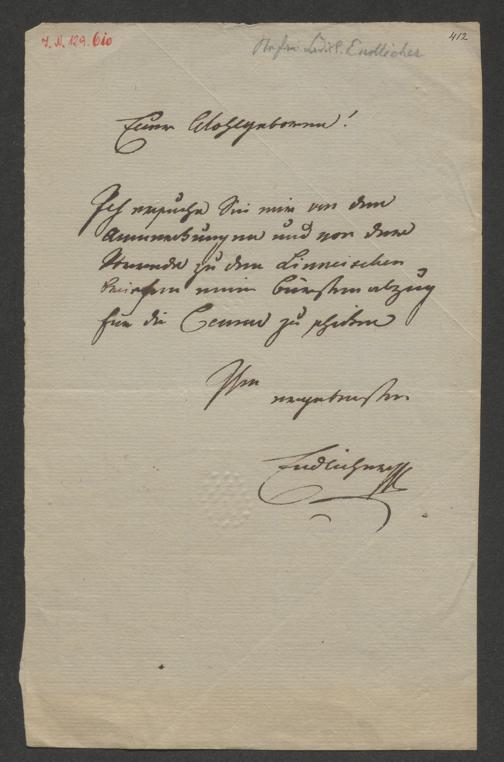 I. N. 129.610
Stefan Ladisl. Endlicher
412
Euer Wohlgeboren!
Ich ersuche Sie mir von den
Anmerkungen und von dem
zu den Linneischen
Briefen einen Bürstenabzug
für die Censur zu schicken
Ihr
ergebenster
Endlicher